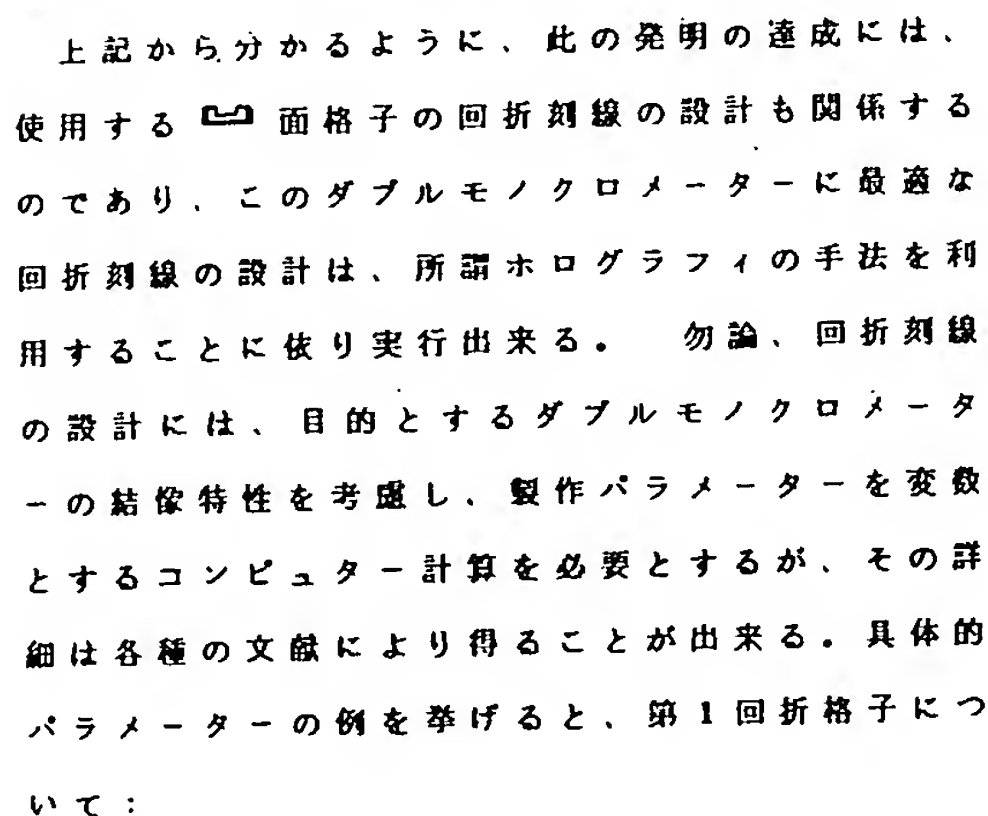 上記から分かるように、此の発明の達成には、
使用する凹面格子の回折刻線の設計も関係する
のであり、このダブルモノクロメーターに最適な
回折刻線の設計は、所謂ホログラフィの手法を利
用することに依り実行出来る。 勿論、回折刻線
の設計には、目的とするダブルモノクロメータ
ーの結像特性を考慮し、製作パラメーターを変数
とするコンピューター計算を必要とするが、その詳
細は各種の文献により得ることが出来る。具体的
パラメーターの例を挙げると、第1回折格子につ
いて: